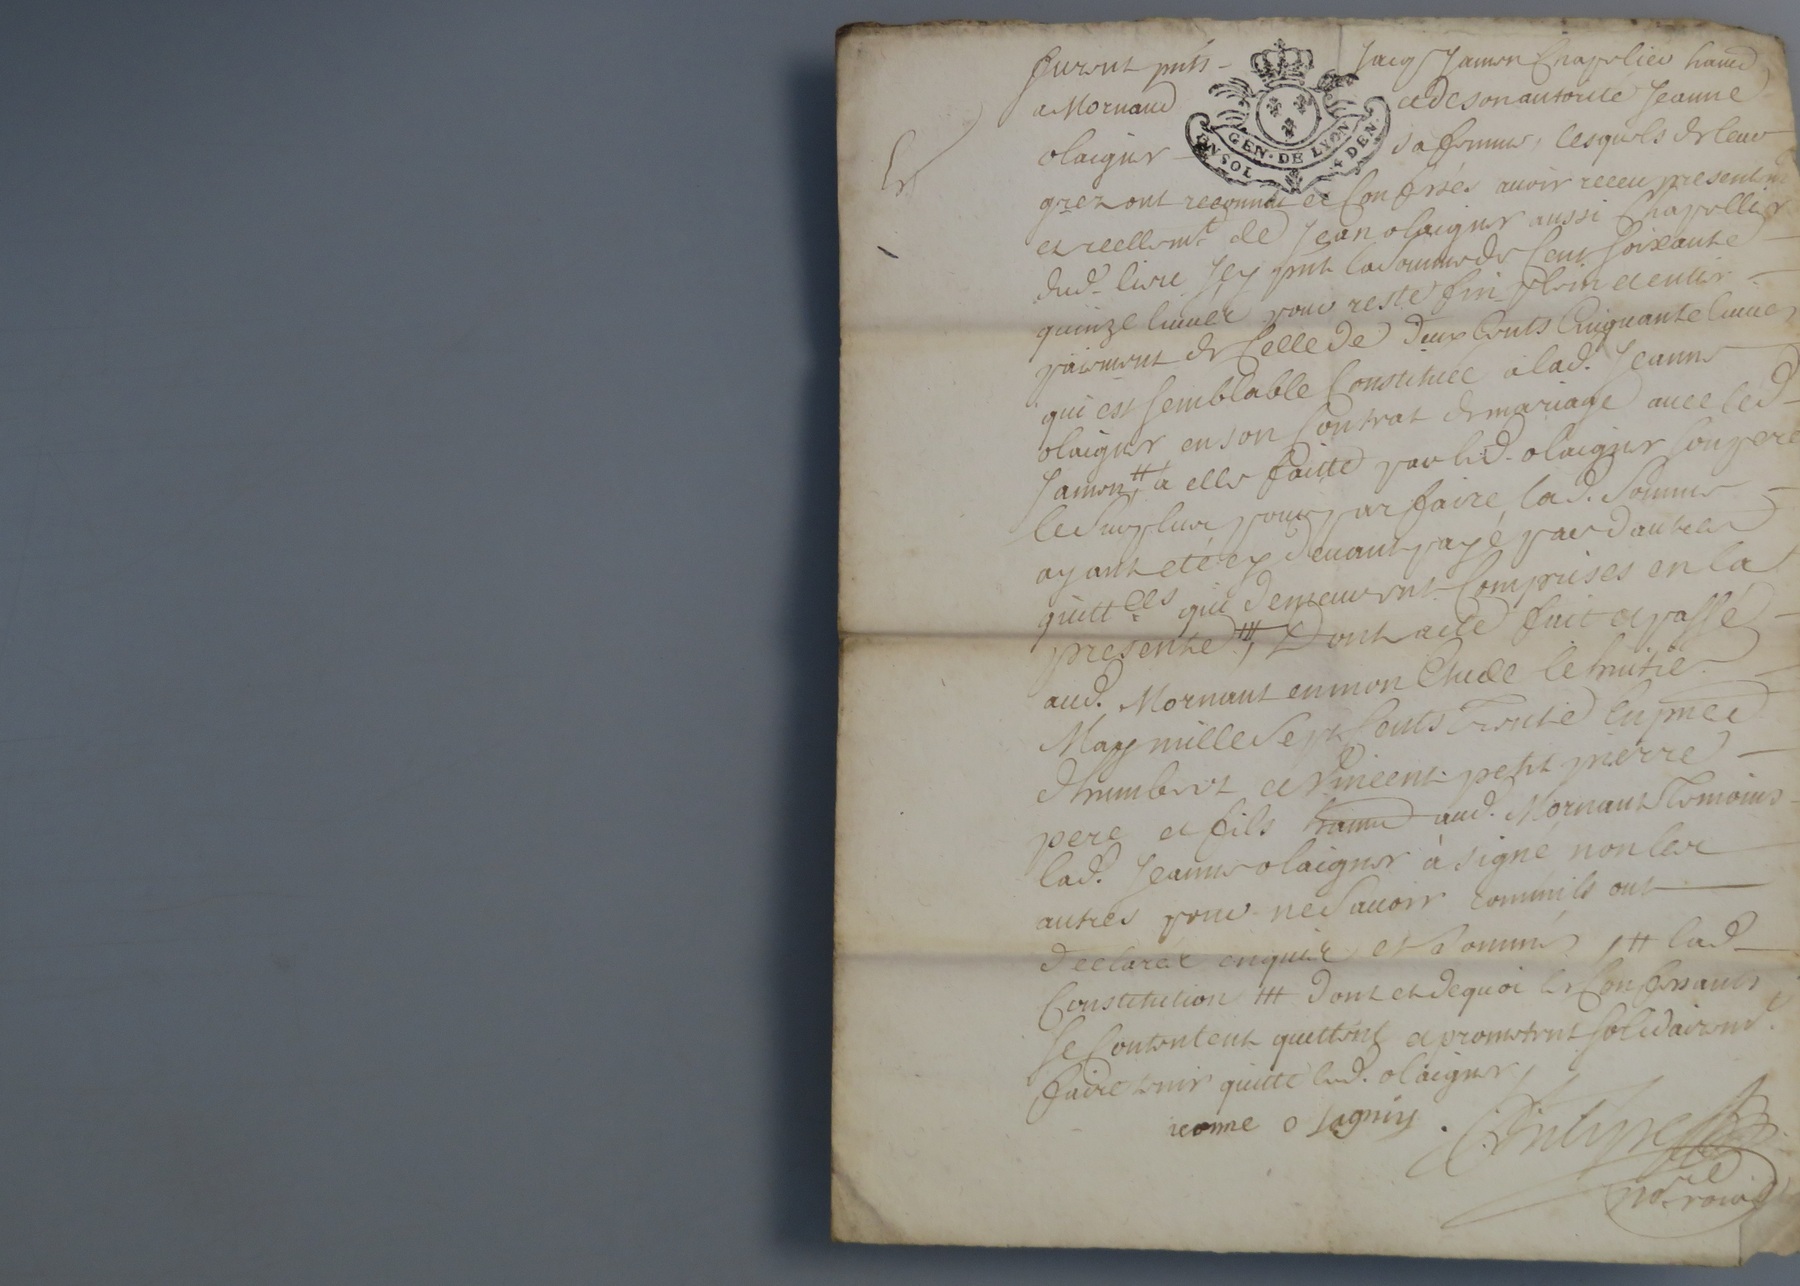 furent pnts Jacq Jamen Chapelier hand
a Mornand et de son autorité Jeanne
GEN · DE LYON
UN SOL 4 DEN.
olaigner sa femme, lesquels de leur
grez ont reconnu et Confessés avoir receu presentmt
et reellemt de Jean olaigner aussi Chapellier
dud. lieu Jcy pnt la somme de Cent soixante
quinze livres pour reste fin plein et entier
paiement de Celle de deux Cents Cinquante livres
qui est semblable Constituée a lad. Jeanne
olaigner en son Contrat de mariage avec led
Jamen # a elle faitte par led. olaigner son pere
le surplus pour parfaire lad. somme
ayant eté cy devant payé par dautres
quittces qui demeurent Comprises en la
presente ### Dont acte fait et passé
aud. Mornant en mon Etude le huitie
May mille sept Cents Trente En pnce
dhumbert et Vincent petit pierre
pere et fils hand aud. Mornant Temoins
lad. Jeanne olaigner à signé non les
autres pour ne Savoir comm'ils ont
declarés enquis et sommés # lad
Constitution ### dont et de quoi les Confessants
se Contentent quittent et promettent solidairemt
faire tenir quitte led. olaigner
ieanne o lagniy .
nore roial